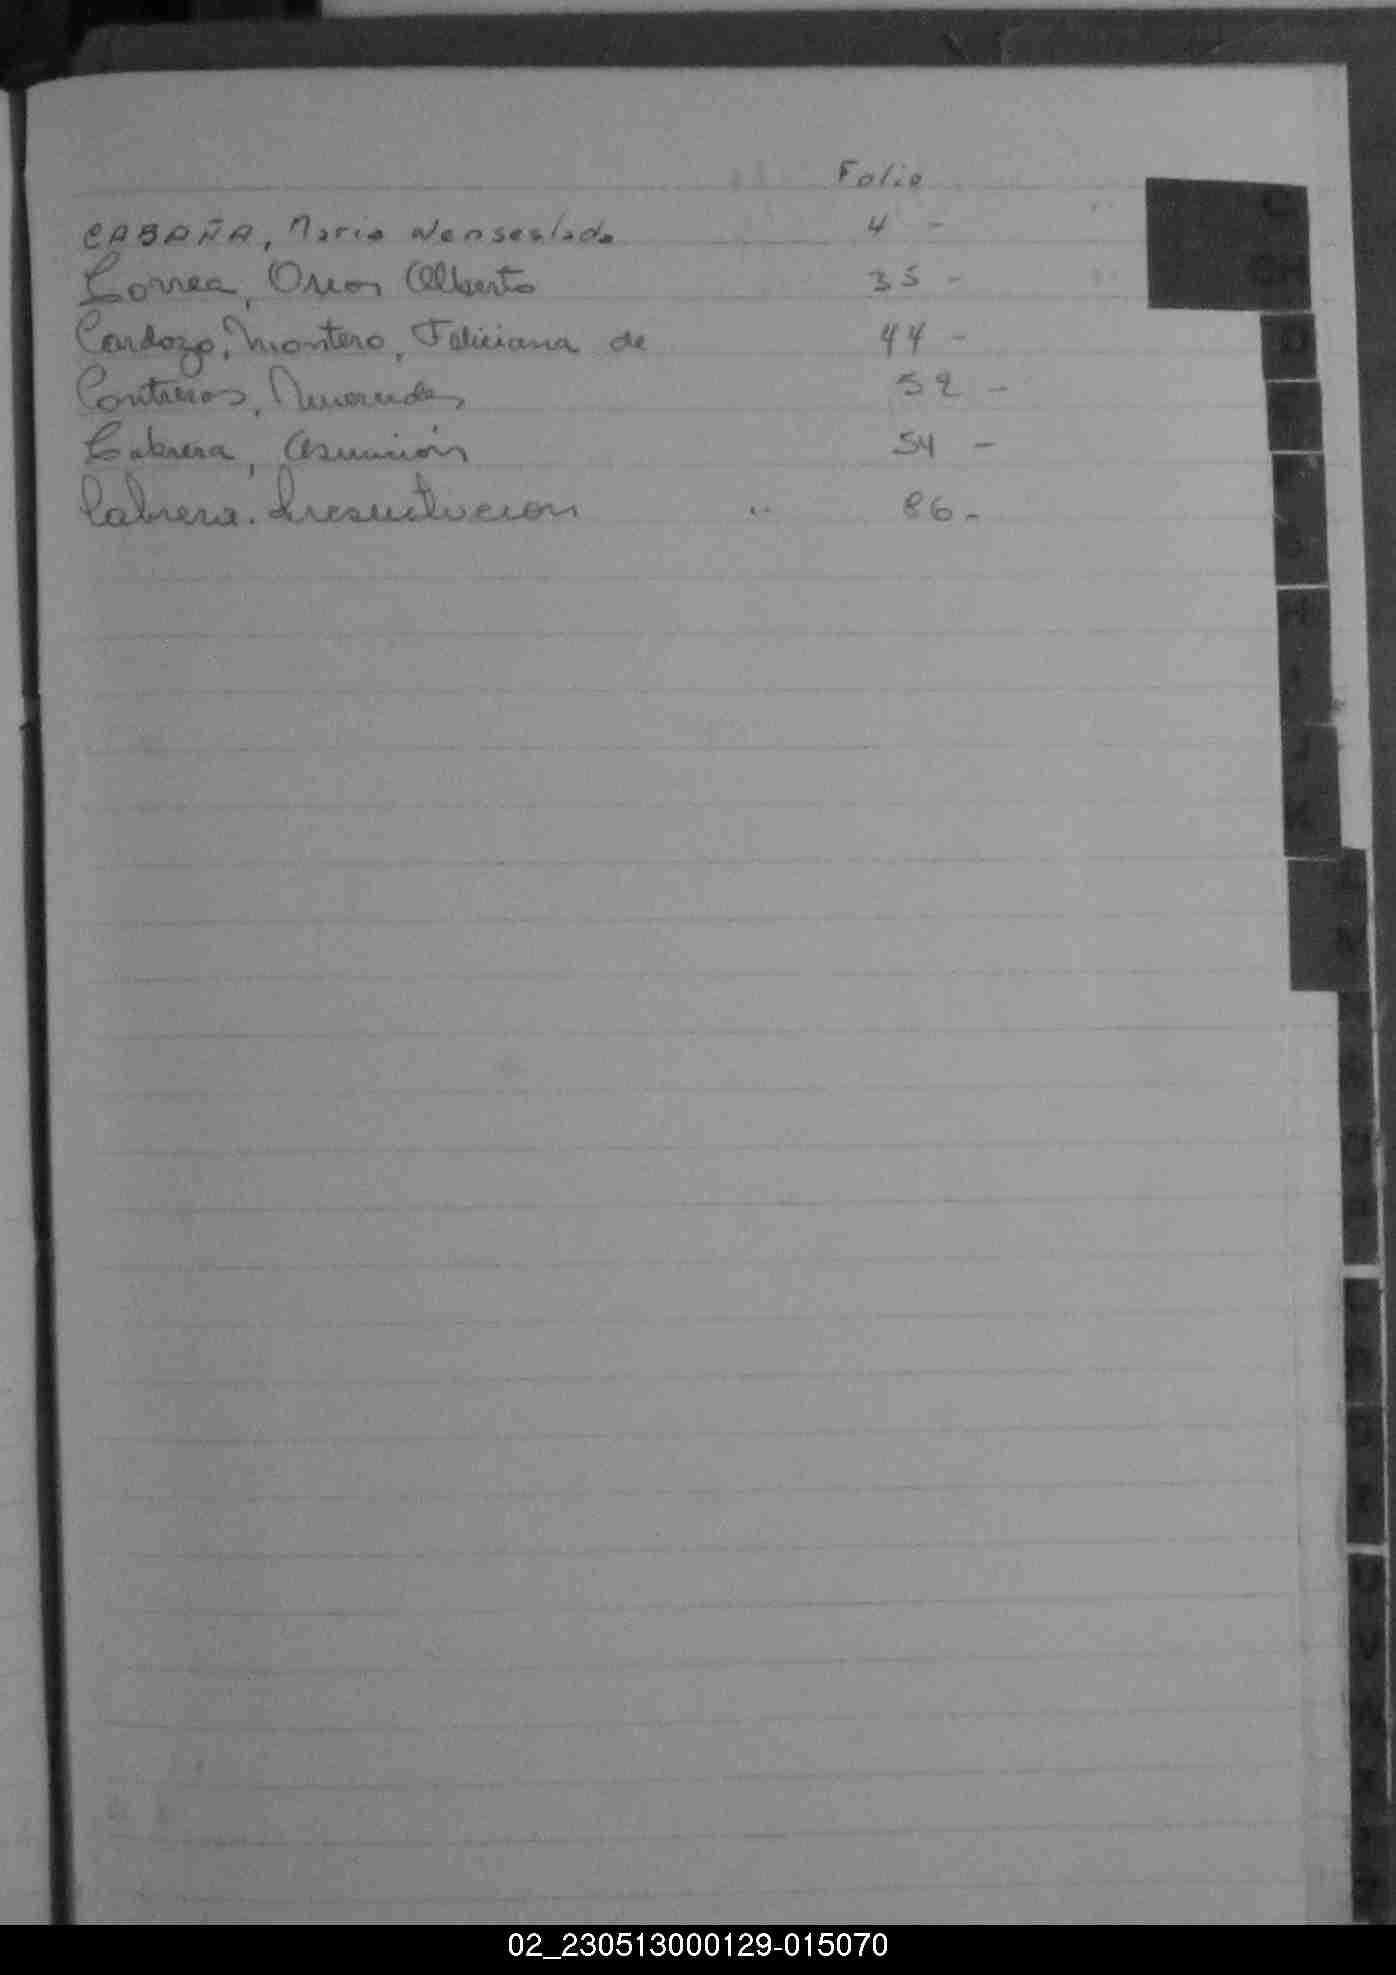 Folio
CABAÑA, Maria Wenseslada 4 -
Correa, Oscar Alberto 35 -
Cardozo, Montero, Feliciana de 44 -
Contreras, Mercedes 52 -
Cabrera, Asunción 54 -
Cabrera. " 86 -
C
CH
D
02_230513000129-015070